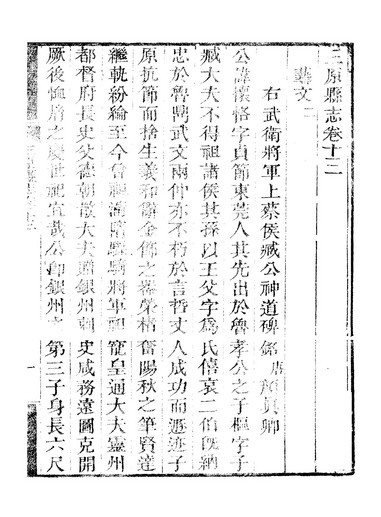 三原縣志卷十二
藝文二
右武衛將軍上蔡侯臧公神道碑銘 唐 顏真卿
公諱懷恪字貞節東莞人其先出於魯孝公之子彄字子
臧大夫不得祖諸侯其孫以王父字為氏僖哀二伯既納
忠於魯鼎武文兩仲亦不朽於言哲丈人成功而遯迹子
原抗節而捨生義和 金 之 榮緒奮陽秋之筆賢達
繼軌紛綸至今曾祖 驃騎將軍祖寵皇通大夫靈州
都督府長史父德朝散大夫 銀州 史咸務遠圖克開
厥後 慶世祀宜哉公即銀州之第三子身長六尺